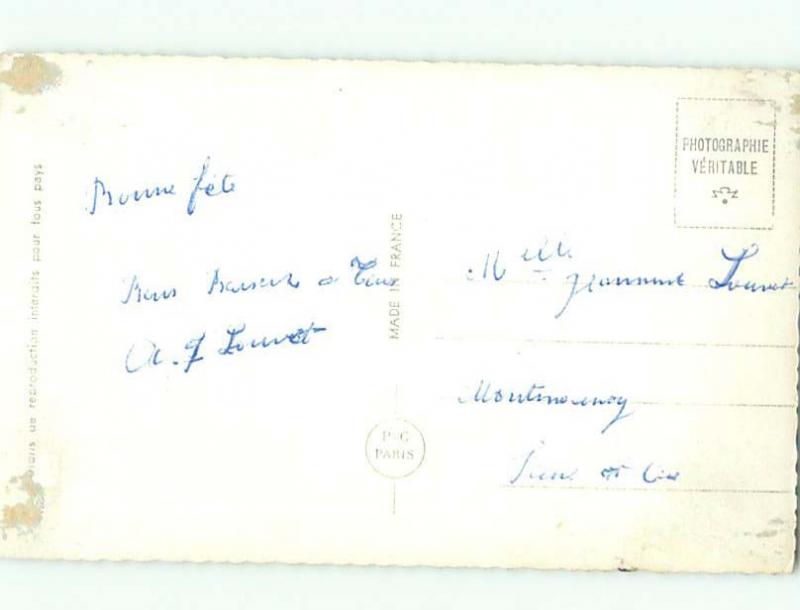 Bonne fête
Bons Baisers à Tous
A. J Louvet
ons de reproduction interdits pour tous pays
MADE IN FRANCE
P-C
PARIS
PHOTOGRAPHIE
VÉRITABLE
Melle Jeannine Louvet
Montmorency
Seine et Oise